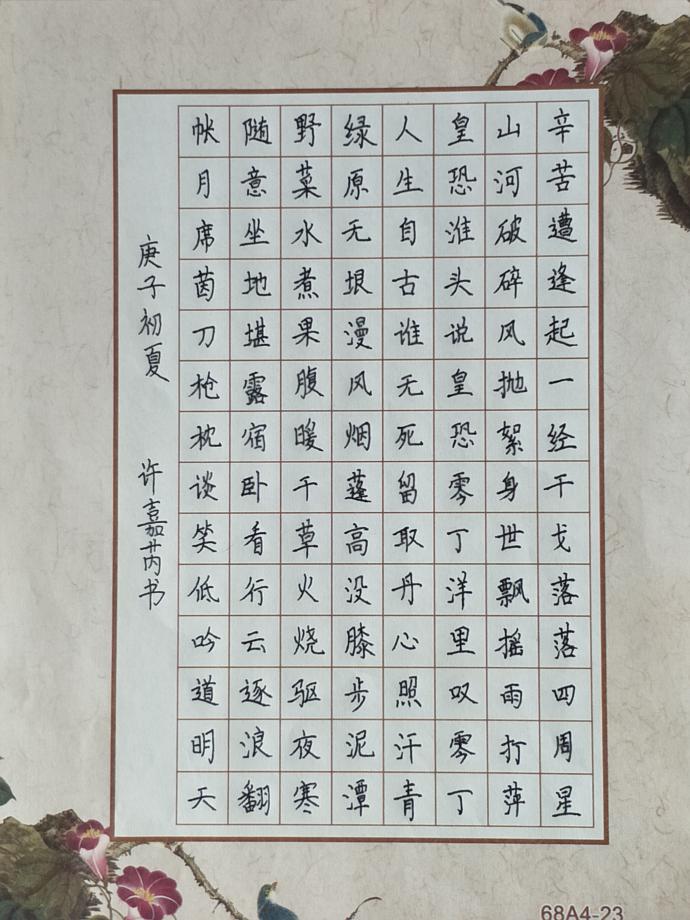 辛苦遭逢起一经干戈落落四周星
山河破碎风抛絮身世飘摇雨打萍
皇恐滩头说皇恐零丁洋里叹零丁
人生自古谁无死留取丹心照汗青
绿原无垠漫风烟蓬高没膝步泥潭
野菜水煮果腹暖干草火烧驱夜寒
随意坐地堪露宿卧看行云逐浪翻
帐月席茵刀枪枕谈笑低吟道明天
庚子初夏 许嘉芮书
68A4-23